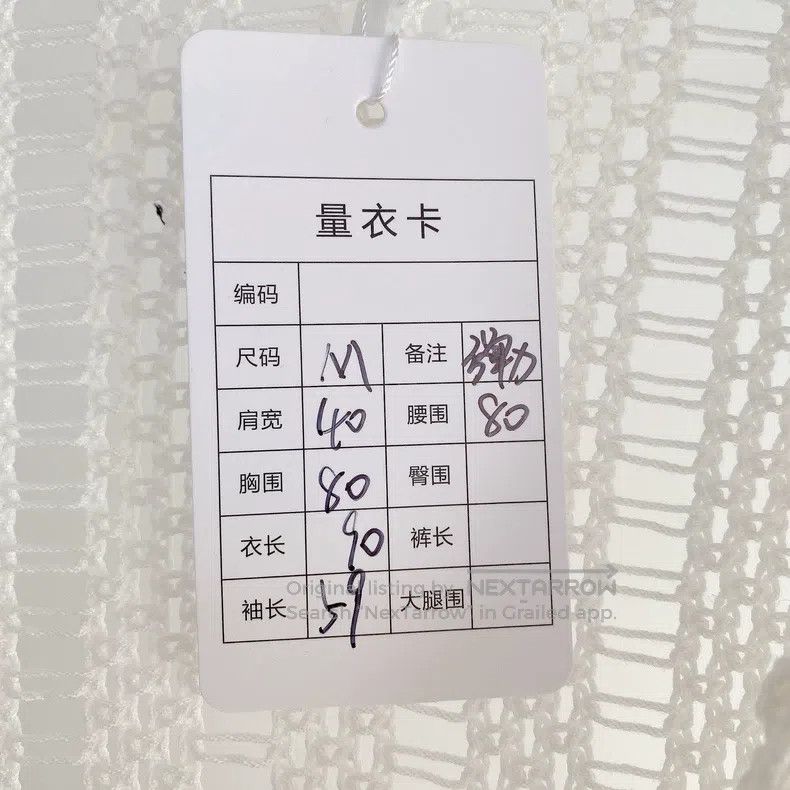 量衣卡
编码
尺码 M 备注 弹力
肩宽 40 腰围 80
胸围 80 臀围
衣长 90 裤长
袖长 59 大腿围
Original listing by NEXTARROW
Search "NexTarrow" in Grailed app.